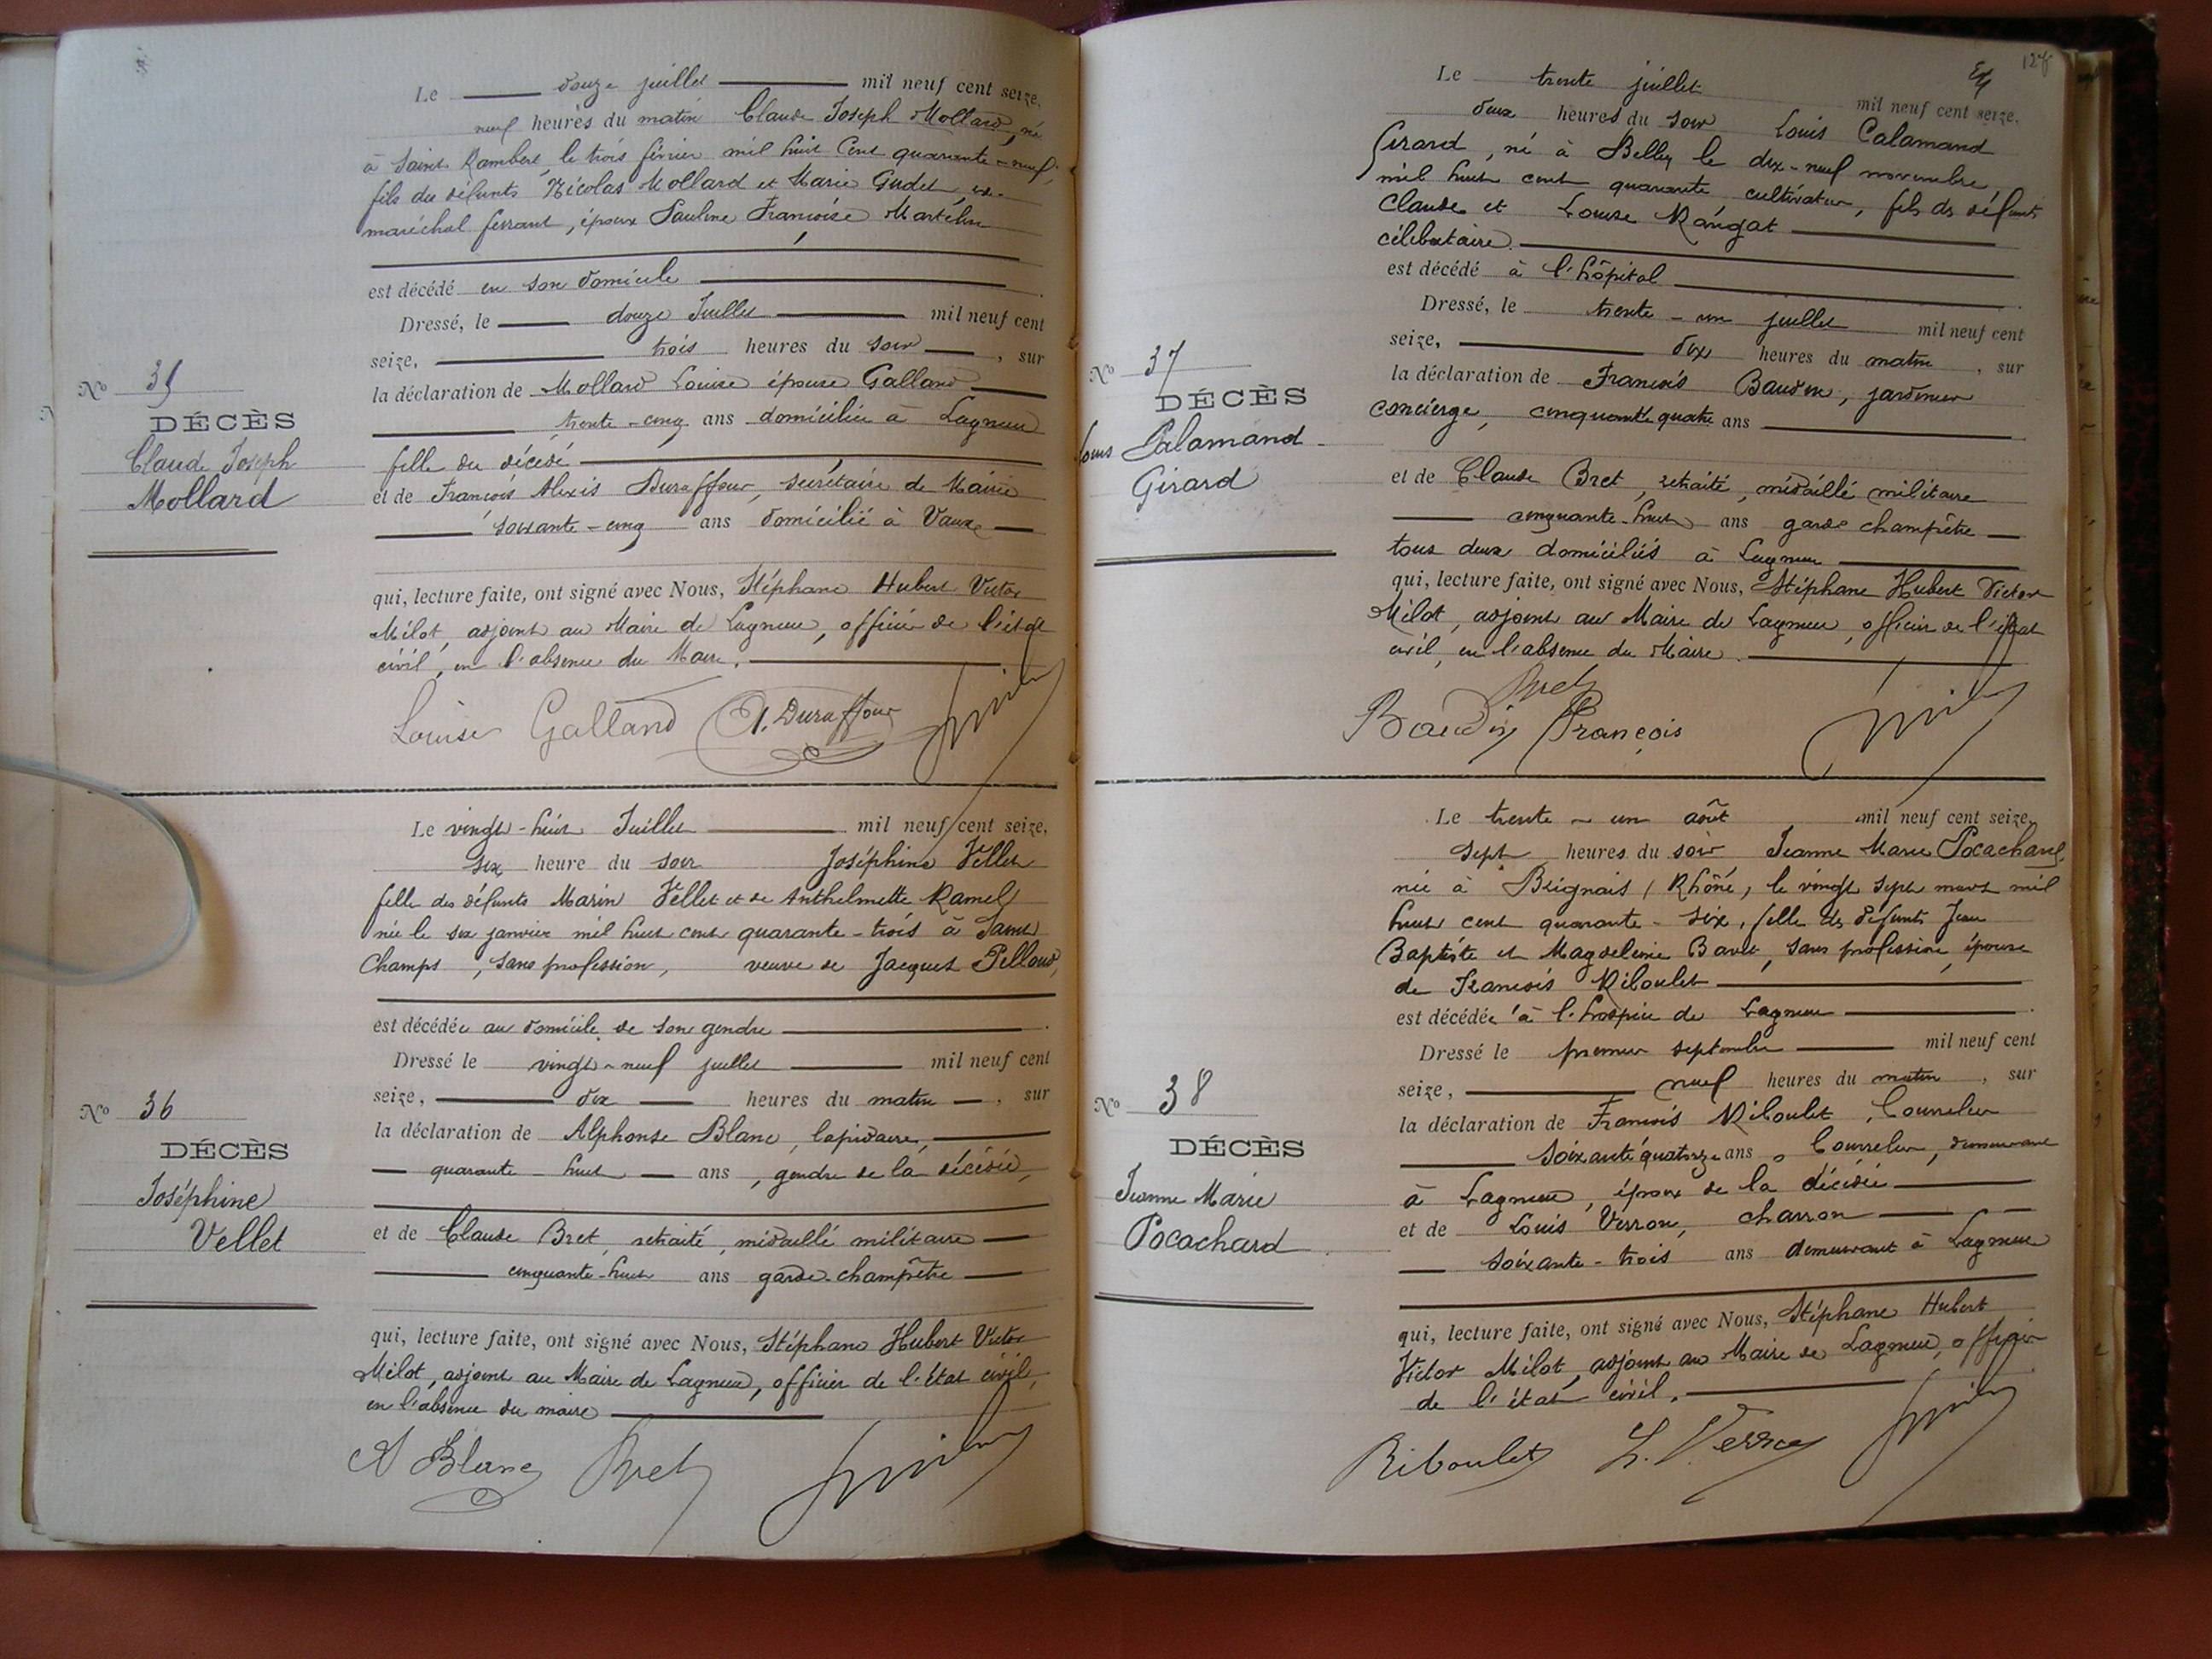 Le douze juillet mil neuf cent seize,
neuf heures du matin Claude Joseph Mollard, né
à Saint Rambert, le trois février mil huit cent quarante-neuf,
fils des défunts Nicolas Mollard et Marie Gudet, ex-
maréchal ferrant, époux Pauline Françoise
est décédé en son domicile
Dressé, le douze Juillet mil neuf cent
seize, trois heures du soir, sur
No 35
la déclaration de Mollard Louise épouse Galland
DÉCÈS
trente-cinq ans domiciliée à Lagnieu
Claude Joseph
fille du décédé
Mollard
et de François Alexis Duraffour, secrétaire de Mairie
soixante-cinq ans domicilié à Vaux
qui, lecture faite, ont signé avec Nous, Stéphane Hubert Victor
Milot, adjoint au Maire de Lagnieu, officier de l'état
civil, en l'absence du Maire.
Louise Galland A. Duraffour
Le vingt-huit Juillet mil neuf cent seize,
six heure du soir Joséphine Vellet
fille des défunts Marin Vellet et de Anthelmette Ramel
née le six janvier mil huit cent quarante-trois à Saint
Champs, sans profession, veuve de Jacques Pelloud,
est décédée au domicile de son gendre
Dressé le vingt-neuf juillet mil neuf cent
seize, dix heures du matin, sur
No 36
la déclaration de Alphonse Blanc, lapidaire,
DÉCÈS
quarante-huit ans, gendre de la décédée,
Joséphine
Vellet
et de Claude Bret, retraité, médaillé militaire
cinquante-huit ans garde-champêtre
qui, lecture faite, ont signé avec Nous, Stéphane Hubert Victor
Milot, adjoint au Maire de Lagnieu, officier de l'état civil,
en l'absence du maire
A Blanc Bret
Le trente juillet mil neuf cent seize.
deux heures du soir Louis Calamand
Girard, né à Belley le dix-neuf novembre,
mil huit cent quarante cultivateur, fils des défunts
Claude et Louise
célibataire.
est décédé à l'hôpital
Dressé, le trente-un juillet mil neuf cent
seize, dix heures du matin, sur
No 37
la déclaration de François Baudin, jardinier
DÉCÈS
concierge, cinquante quatre ans
Louis Calamand-
Girard
et de Claude Bret, retraité, médaillé militaire
cinquante-huit ans garde champêtre
tous deux domiciliés à Lagnieu
qui, lecture faite, ont signé avec Nous, Stéphane Hubert Victor
Milot, adjoint au Maire de Lagnieu, officier de l'état
civil, en l'absence du Maire.
Bret
Baudin François
Le trente-un août mil neuf cent seize,
sept heures du soir Jeanne Marie Pocachard,
née à Brignais (Rhône, le vingt sept mars mil
huit cent quarante-six, fille des défunts Jean
Baptiste et Magdeleine, sans profession, épouse
de François Riboulet
est décédée à l'hospice de Lagnieu
Dressé le premier septembre mil neuf cent
seize, neuf heures du matin, sur
No 38
la déclaration de François Riboulet, Courrelier
DÉCÈS
soixante quatorze ans, Courrelier, demeurant
Jeanne Marie
à Lagnieu, époux de la décédée
Pocachard
et de Louis Verron, charron
soixante-trois ans demeurant à Lagnieu
qui, lecture faite, ont signé avec Nous, Stéphane Hubert
Victor Milot, adjoint au Maire de Lagnieu, officier
de l'état civil.
Riboulet L. Verron